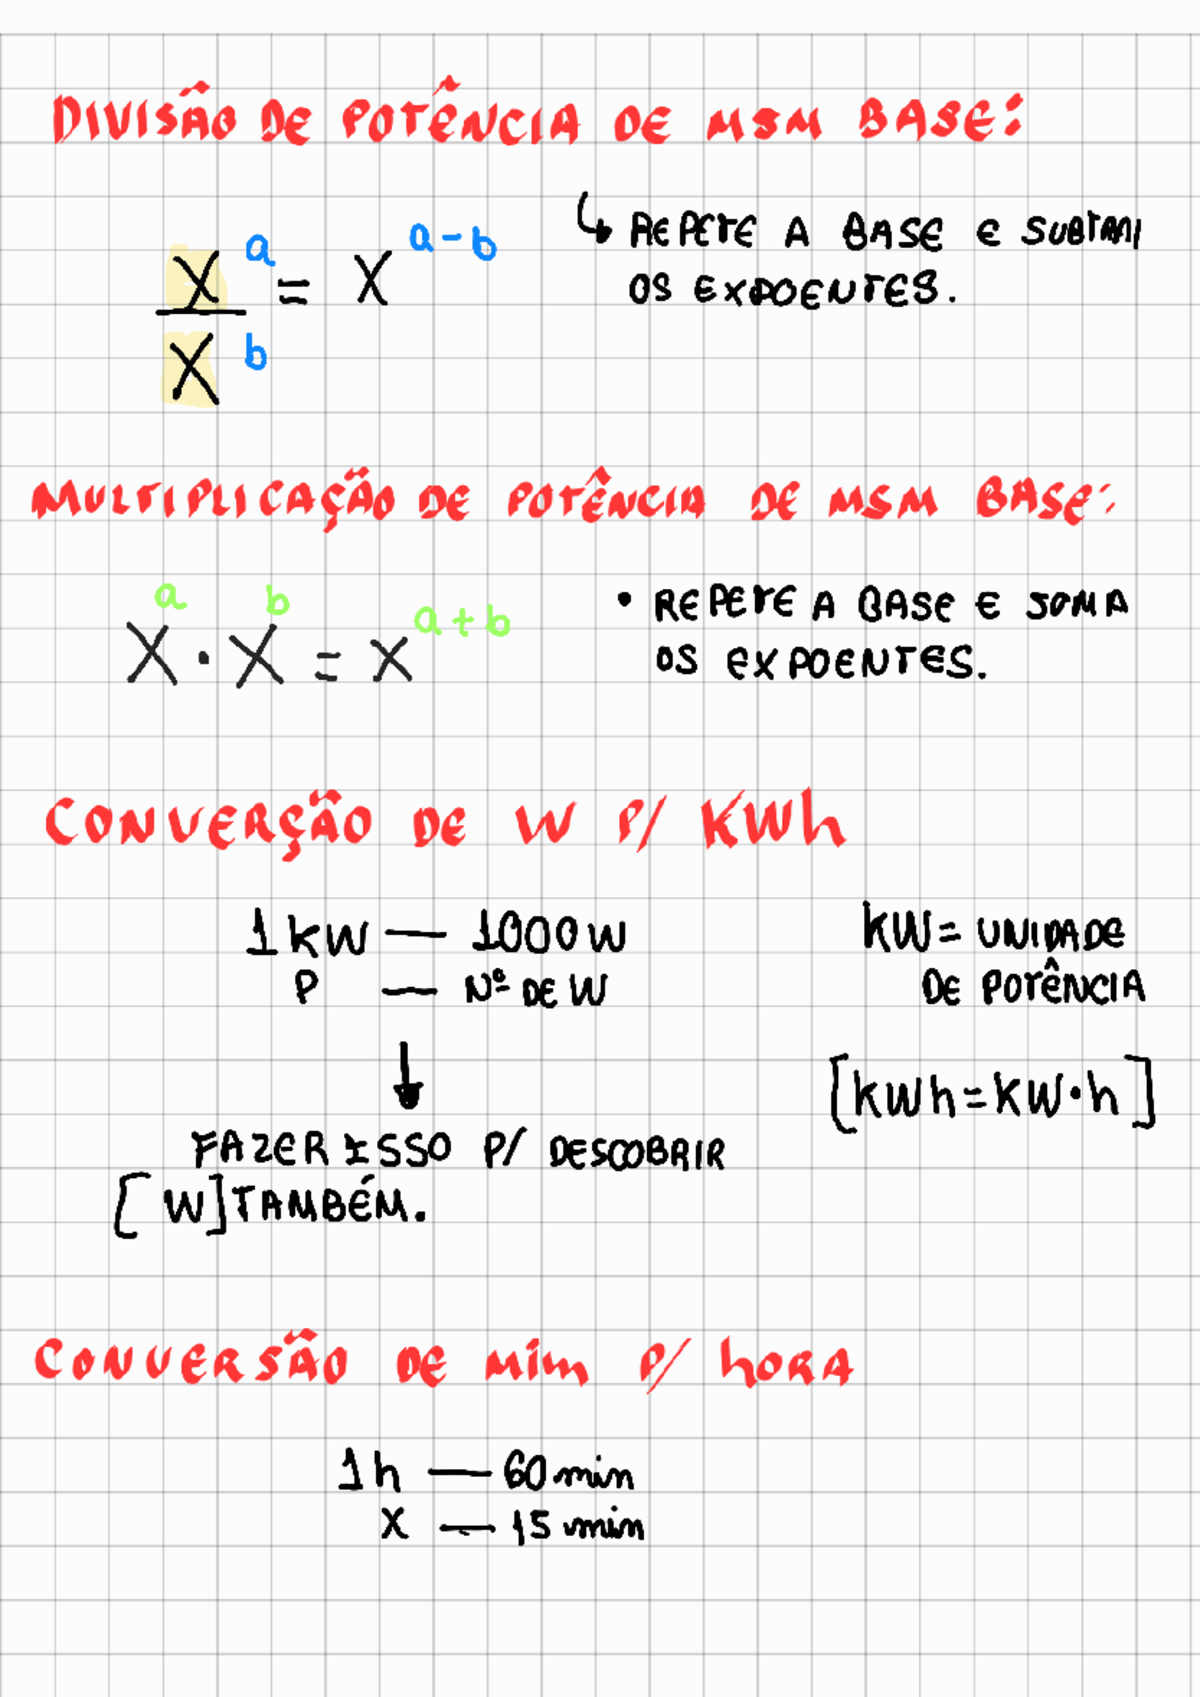 DIVISÃO DE POTÊNCIA DE MSM BASE:
↳ REPETE A BASE E SUBTRAI
OS EXPOENTES.
X^a / X^b = X^(a-b)
MULTIPLICAÇÃO DE POTÊNCIA DE MSM BASE:
X^a · X^b = X^(a+b)
• REPETE A BASE E SOMA
OS EXPOENTES.
CONVERÇÃO DE W P/ KWh
1 KW — 1000 W
P — Nº DE W
KW = UNIDADE
DE POTÊNCIA
[KWh = KW·h]
↓
FAZER ISSO P/ DESCOBRIR
[W] TAMBÉM.
CONVERSÃO DE Mim P/ hORA
1h — 60 min
X — 15 min